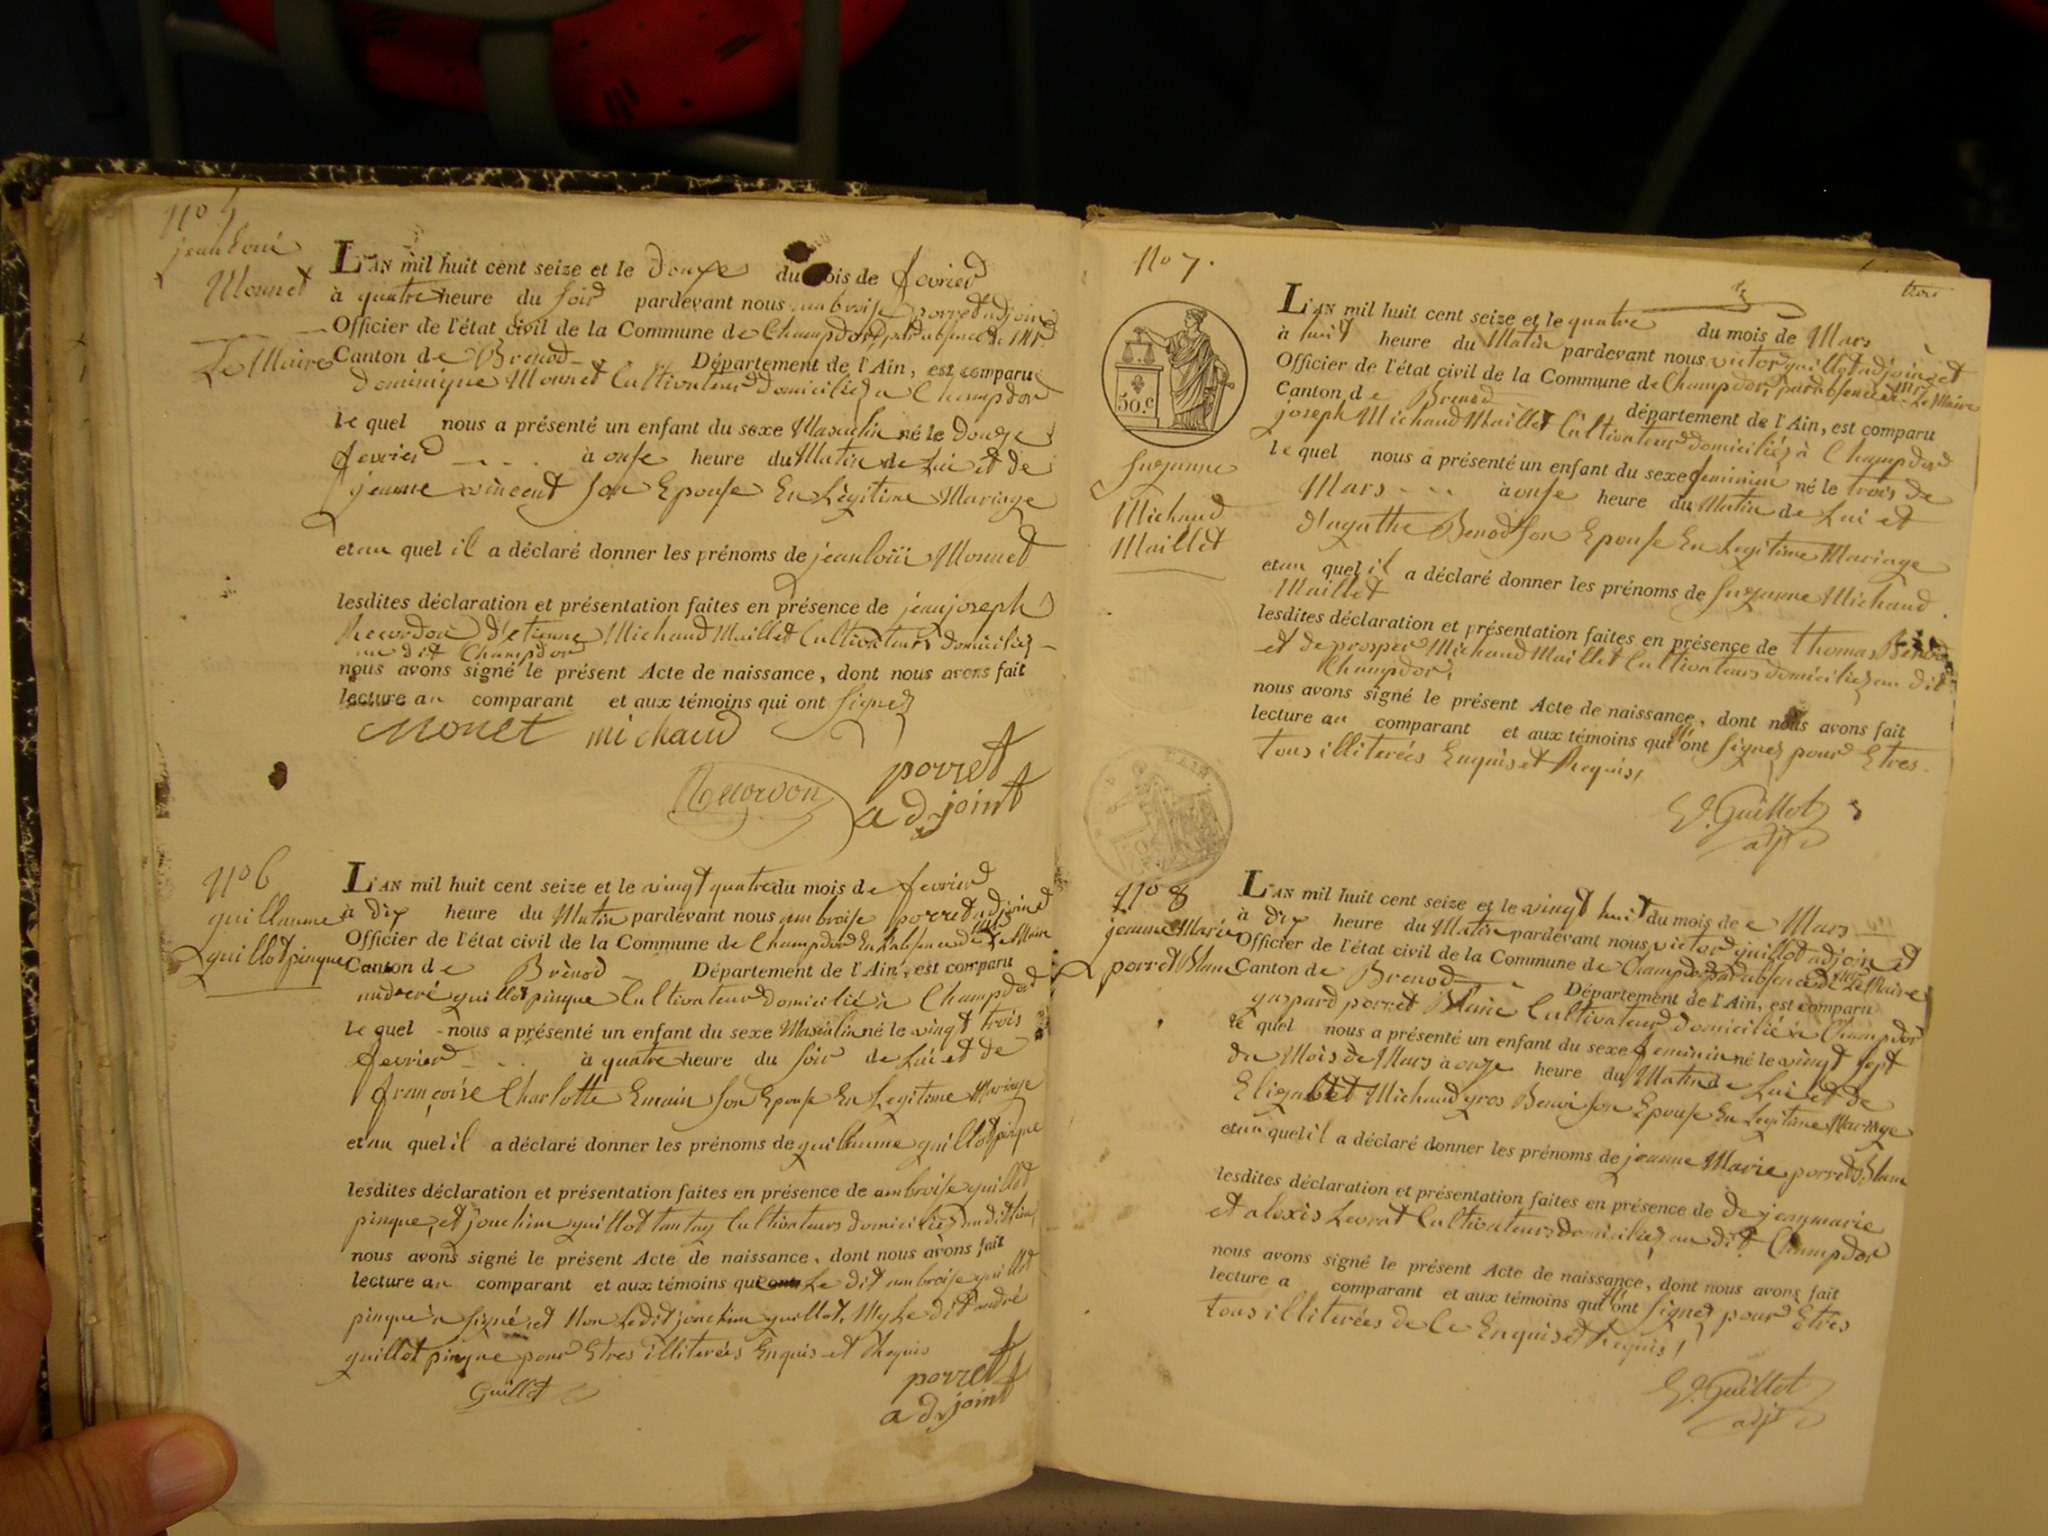 No 5
jean loüi
Monnet
Le Maire
L'AN mil huit cent seize et le douze du mois de fevrier
à quatre heure du soir pardevant nous ambroise porret adjoint
Officier de l'état civil de la Commune de Champdor, par absence de Mr
Canton de Brenod Département de l'Ain, est comparu
dominique Monnet Cultivateur domiciliez a Champdor
le quel nous a présenté un enfant du sexe Masculin né le douze
fevrier à onse heure du Matin de Lui et de
jeanne vincent son Epouse En Légitime Mariage
et au quel il a déclaré donner les prénoms de jean loüi Monnet
lesdites déclaration et présentation faites en présence de jean joseph
Recordon d'etienne Michaud Maillet Cultivateurs domiciliez
au dit Champdor
nous avons signé le présent Acte de naissance, dont nous avons fait
lecture au comparant et aux témoins qui ont signez
Monet michaud
Recordon
porret
adjoint
No 6
guillaume
guillot pinque
L'AN mil huit cent seize et le vingt quatre du mois de fevrier
à dix heure du Matin pardevant nous ambroise porret adjoint
Officier de l'état civil de la Commune de Champdor En Labsence de Mr Le Maire
Canton de Brénod Département de l'Ain, est comparu
andré guillot pinque Cultivateur domicilié à Champdor
le quel nous a présenté un enfant du sexe Masculin né le vingt trois
fevrier à quatre heure du soir de Lui et de
françoise Charlotte Emain son Epouse En Legitime Mariage
et au quel il a déclaré donner les prénoms de guillaume guillot pinque
lesdites déclaration et présentation faites en présence de ambroise guillot
pinque, et joachim guillot tantay Cultivateurs domiciliez au dit lieu,
nous avons signé le présent Acte de naissance, dont nous avons fait
lecture au comparant et aux témoins qui ont Le dit ambroise guillot
pinque a signé, et Non Ledit joachim guillot, Ny Le dit andré
guillot pinque pour Etres illiterés Enquis et Requis
Guillot
porret
adjoint
No 7.
trois
50.c
Suzanne
Michaud
Maillet
L'AN mil huit cent seize et le quatre du mois de Mars
à huit heure du Matin pardevant nous victor guillot adjoint et
Officier de l'état civil de la Commune de Champdor, par absence de Mr Le Maire
Canton de Brenod département de l'Ain, est comparu
joseph Michaud Maillet Cultivateur domiciliez à Champdor
le quel nous a présenté un enfant du sexe feminin né le trois de
Mars à onse heure du Matin de Lui et
d'agathe Benod son Epouse En Legitime Mariage
et au quel il a déclaré donner les prénoms de Suzanne Michaud
Maillet
lesdites déclaration et présentation faites en présence de thomas Bénod
et de prosper Michaud Maillet Cultivateurs domiciliez au dit
Champdor,
nous avons signé le présent Acte de naissance, dont nous avons fait
lecture au comparant et aux témoins qui n'ont signez pour Etres
tous illiterés Enquis et Requis,
Guillot
adjt
No 8
jeanne Marie
porret Blanc
L'AN mil huit cent seize et le vingt huit du mois de Mars
à dix heure du Matin pardevant nous victor guillot adjoint et
Officier de l'état civil de la Commune de Champdor par absence de Mr Le Maire
Canton de Brenod Département de l'Ain, est comparu
gaspard porret Blanc Cultivateur domicilié à Champdor
le quel nous a présenté un enfant du sexe feminin né le vingt sept
du Mois de Mars à onze heure du Matin de Lui et de
Elizabet Michaud gros Benoi son Epouse En Legitime Mariage
et au quel il a déclaré donner les prénoms de jeanne Marie porret Blanc
lesdites déclaration et présentation faites en présence de de jean marie
et alexis Levrat Cultivateurs domiciliez au dit Champdor
nous avons signé le présent Acte de naissance, dont nous avons fait
lecture a comparant et aux témoins qui n'ont signez pour Etres
tous illiterées de Ce Enquis et Requis,
Guillot
adjt